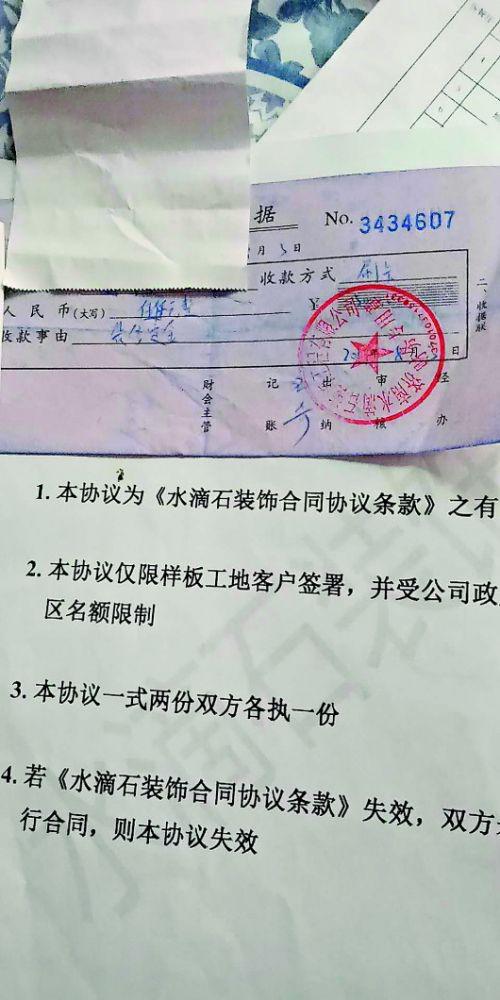 据 No. 3434607
月 3 日
收款方式
人民币(大写) ¥
收款事由
二、收据联
年 月 日
财会主管 记账 出纳 审核 经办
1. 本协议为《水滴石装饰合同协议条款》之有
2. 本协议仅限样板工地客户签署，并受公司政
区名额限制
3. 本协议一式两份双方各执一份
4. 若《水滴石装饰合同协议条款》失效，双方
行合同，则本协议失效